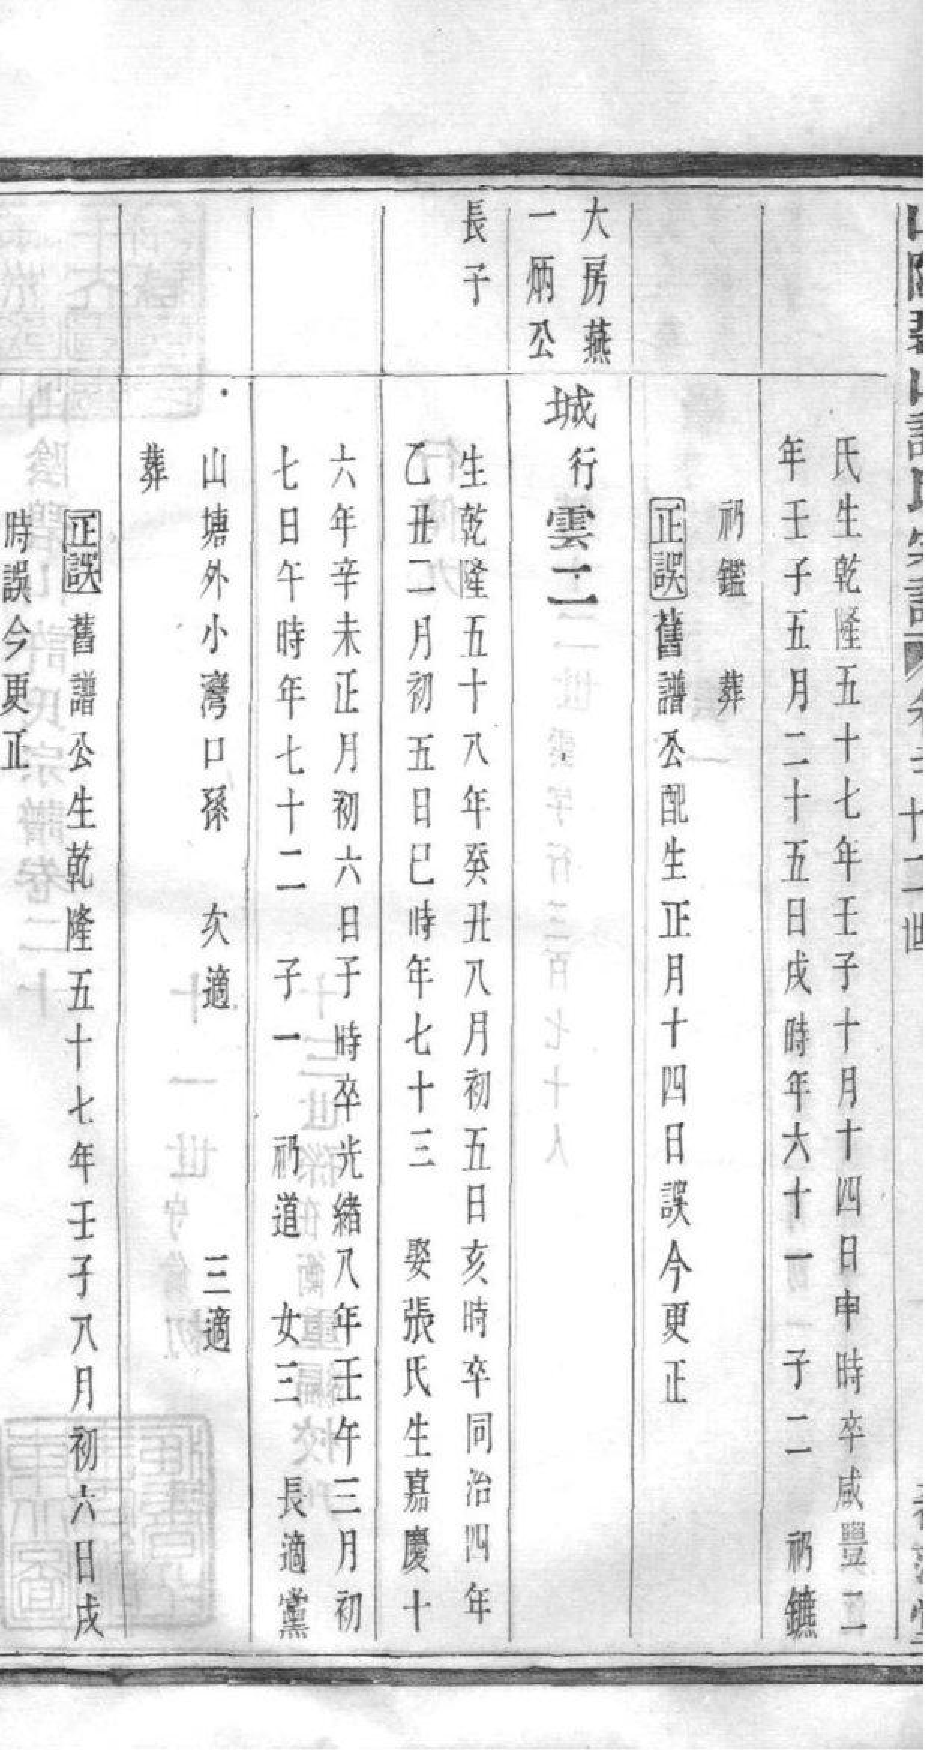 氏生乾隆五十七年壬子十月十四日申時卒咸豐二
年壬子五月二十五日戌時年六十一子二 礽鑣
礽鑑 葬
正誤舊譜公配生正月十四日誤今更正
大房燕
一炳公
長子
城行雲二
生乾隆五十八年癸丑八月初五日亥時卒同治四年
乙丑二月初五日巳時年七十三 娶張氏生嘉慶十
六年辛未正月初六日子時卒光緒八年壬午三月初
七日午時年七十二 子一 礽道 女三 長適黨
山塘外小灣口孫 次適 三適
葬
正誤舊譜公生乾隆五十七年壬子八月初六日戌
時誤今更正